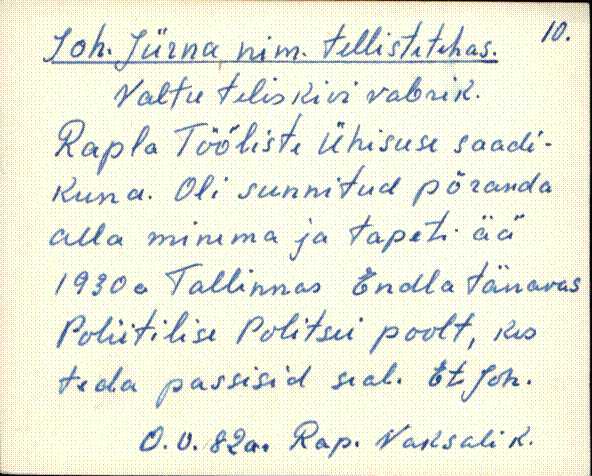 10.
Joh. Jürna nim. tellistetehas.
Valtu teliskivi vabrik.
Rapla Tööliste Ühisuse saadi-
kuna. Oli sunnitud põranda
alla minema ja tapeti ää
1930 a Tallinnas Endla tänavas
Poliitilise Politsei poolt, kes
teda passisid seal. Et Joh.
O.V. 82a. Rap. Vaksali k.